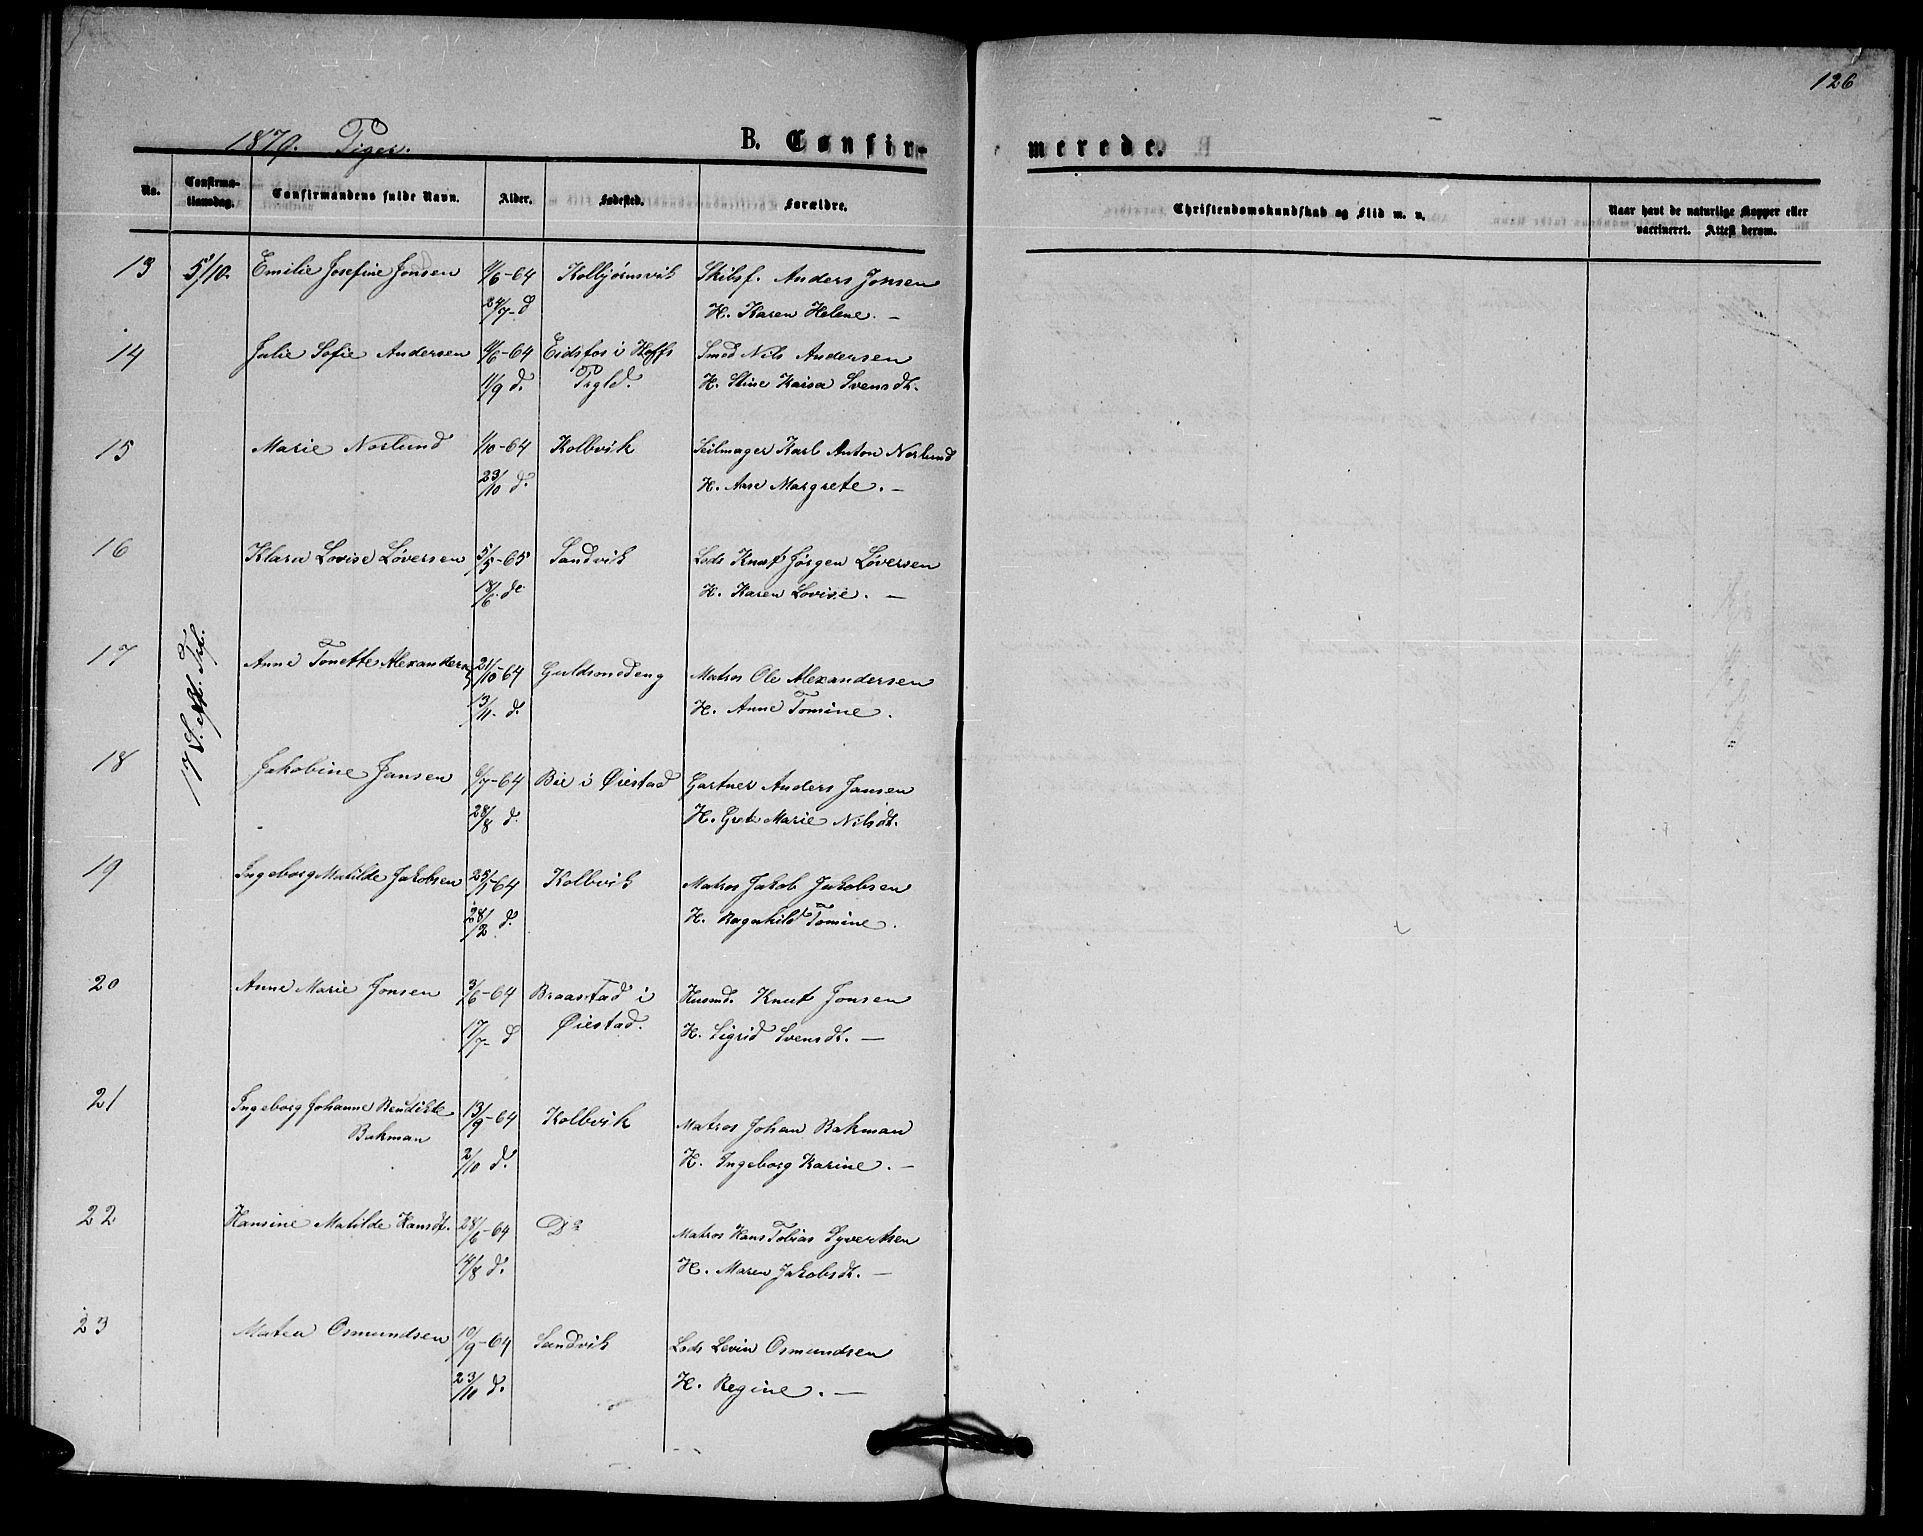 126
1879. Piger. B. Confir-
merede.
No. Confirma-tionsdag. Confirmandens fulde Navn. Alder. Fødested. Forældre. Christendomskundskab og Flid m. v. Naar havt de naturlige Kopper eller vaccineret. Attest derom.
13 5/10. Emilie Josefine Jonsen /6-64 Kolbjørnsvik Skibsf. Anders Jonsen
24/7- d H. Karen Helene. —
14 Julie Sofie Andersen /6-64 Eidsfos i Hoffs Smed Nils Andersen
11/9 d. Prgld. H. Stine Kaisa Svensdt.
15 Marie Norlund /10-64 Kolbvik Seilmager Karl Anton Norlund
23/10 d. H. Ane Margrete. —
16 Klara Lovise Løversen 5/5-65 Sandvik Lods Knut Jørgen Løversen
18/6. do H. Karen Lovise. —
17 S. eft. Tr.
17 Anne Tonette Alexandersen 21/10-64 Guldsmedeng Matros Ole Alexandersen
13/11- d. H. Anne Tomine.
18 Jakobine Jansen 6/7-64 Bie i Øiestad Gartner Anders Jansen
28/8 d. H. Grete Marie Nilsdt.
19 Ingeborg Matilde Jakobsen 25/1-64 Kolbvik Matros Jakob Jakobsen
28/2 d. H. Ragnhild Tomine.
20 Anne Marie Jonsen 3/6-64 Braastad i Husmd. Knut Jonsen
17/7- d Øiestad. H. Sigrid Svensdt. —
21 Ingeborg Johanne Bendikte 13/9-64 Kolbvik Matros Johan Bakman
Bakman 2/10 d. H. Ingeborg Karine. —
22 Hansine Matilde Hansdt. 28/6-64 Do Matros Hans Tobias Syvertsen
14/8 d. H. Maren Jakobsdt. —
23 Matea Osmundsen 10/9-64 Sandvik Lods Levin Osmundsen
23/10 d. H. Regine. —